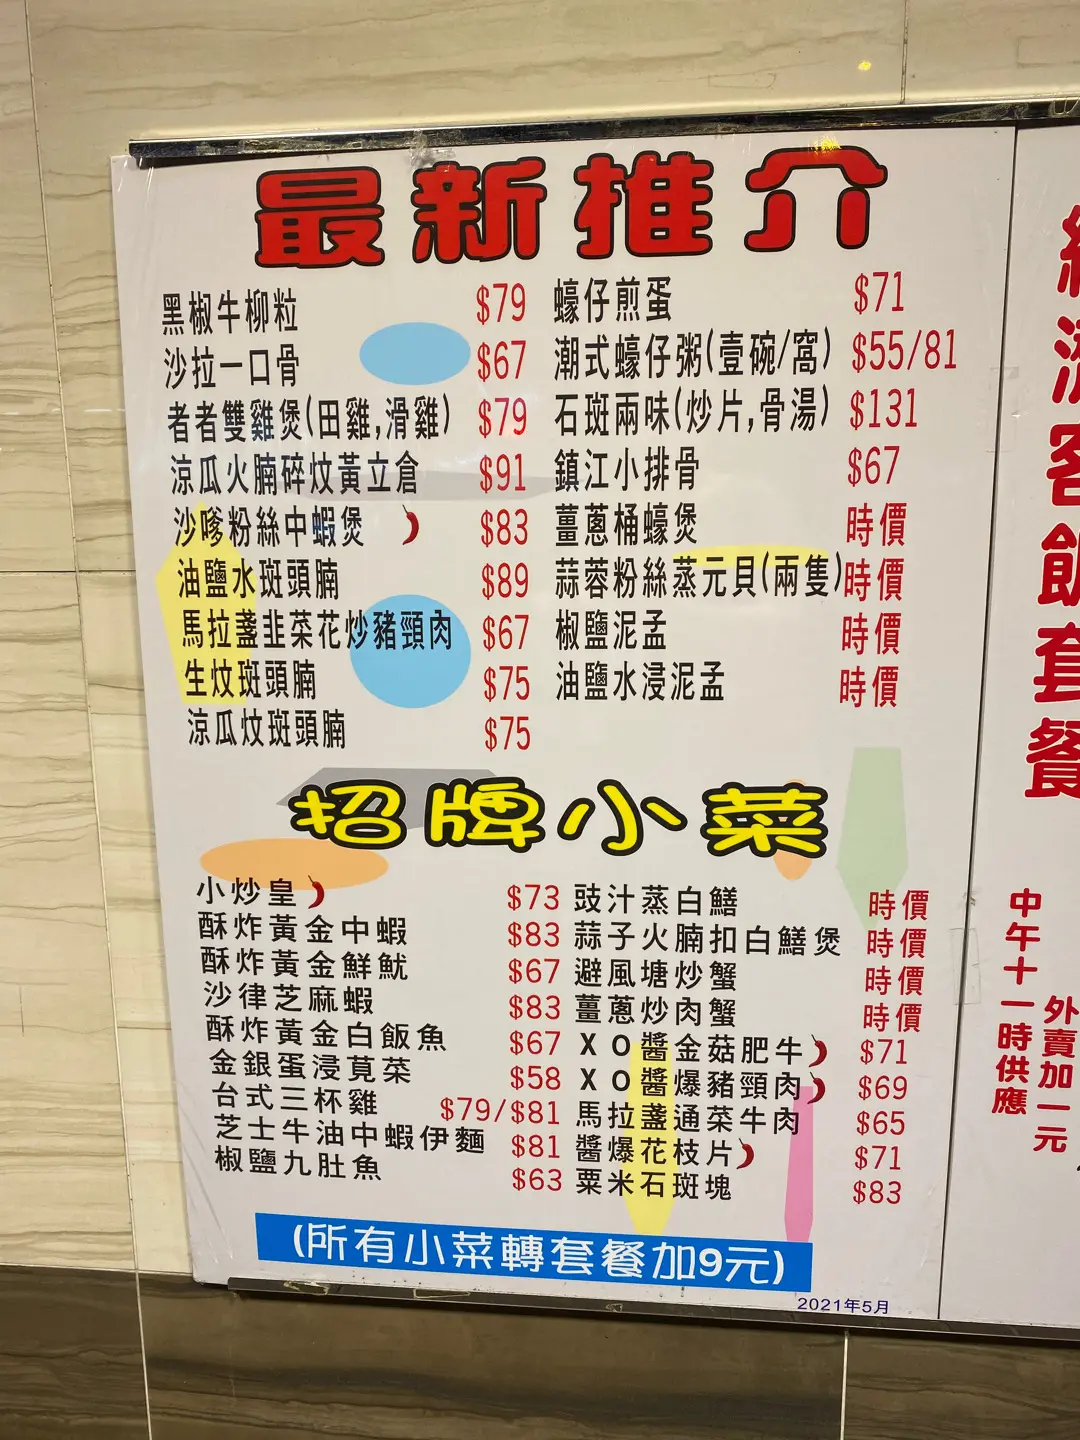 最新推介
黑椒牛柳粒 $79
沙拉一口骨 $67
者者雙雞煲(田雞,滑雞) $79
涼瓜火腩碎炆黃立倉 $91
沙嗲粉絲中蝦煲 $83
油鹽水斑頭腩 $89
馬拉盞韭菜花炒豬頸肉 $67
生炆斑頭腩 $75
涼瓜炆斑頭腩 $75
蠔仔煎蛋 $71
潮式蠔仔粥(壹碗/窩) $55/81
石斑兩味(炒片,骨湯) $131
鎮江小排骨 $67
薑蔥桶蠔煲 時價
蒜蓉粉絲蒸元貝(兩隻) 時價
椒鹽泥孟 時價
油鹽水浸泥孟 時價
招牌小菜
小炒皇 $73
酥炸黃金中蝦 $83
酥炸黃金鮮魷 $67
沙律芝麻蝦 $83
酥炸黃金白飯魚 $67
金銀蛋浸莧菜 $58
台式三杯雞 $79/$81
芝士牛油中蝦伊麵 $81
椒鹽九肚魚 $63
豉汁蒸白鱔 時價
蒜子火腩扣白鱔煲 時價
避風塘炒蟹 時價
薑蔥炒肉蟹 時價
XO醬金菇肥牛 $71
XO醬爆豬頸肉 $69
馬拉盞通菜牛肉 $65
醬爆花枝片 $71
粟米石斑塊 $83
(所有小菜轉套餐加9元)
2021年5月
客飯套餐
中午十一時供應
外賣加一元